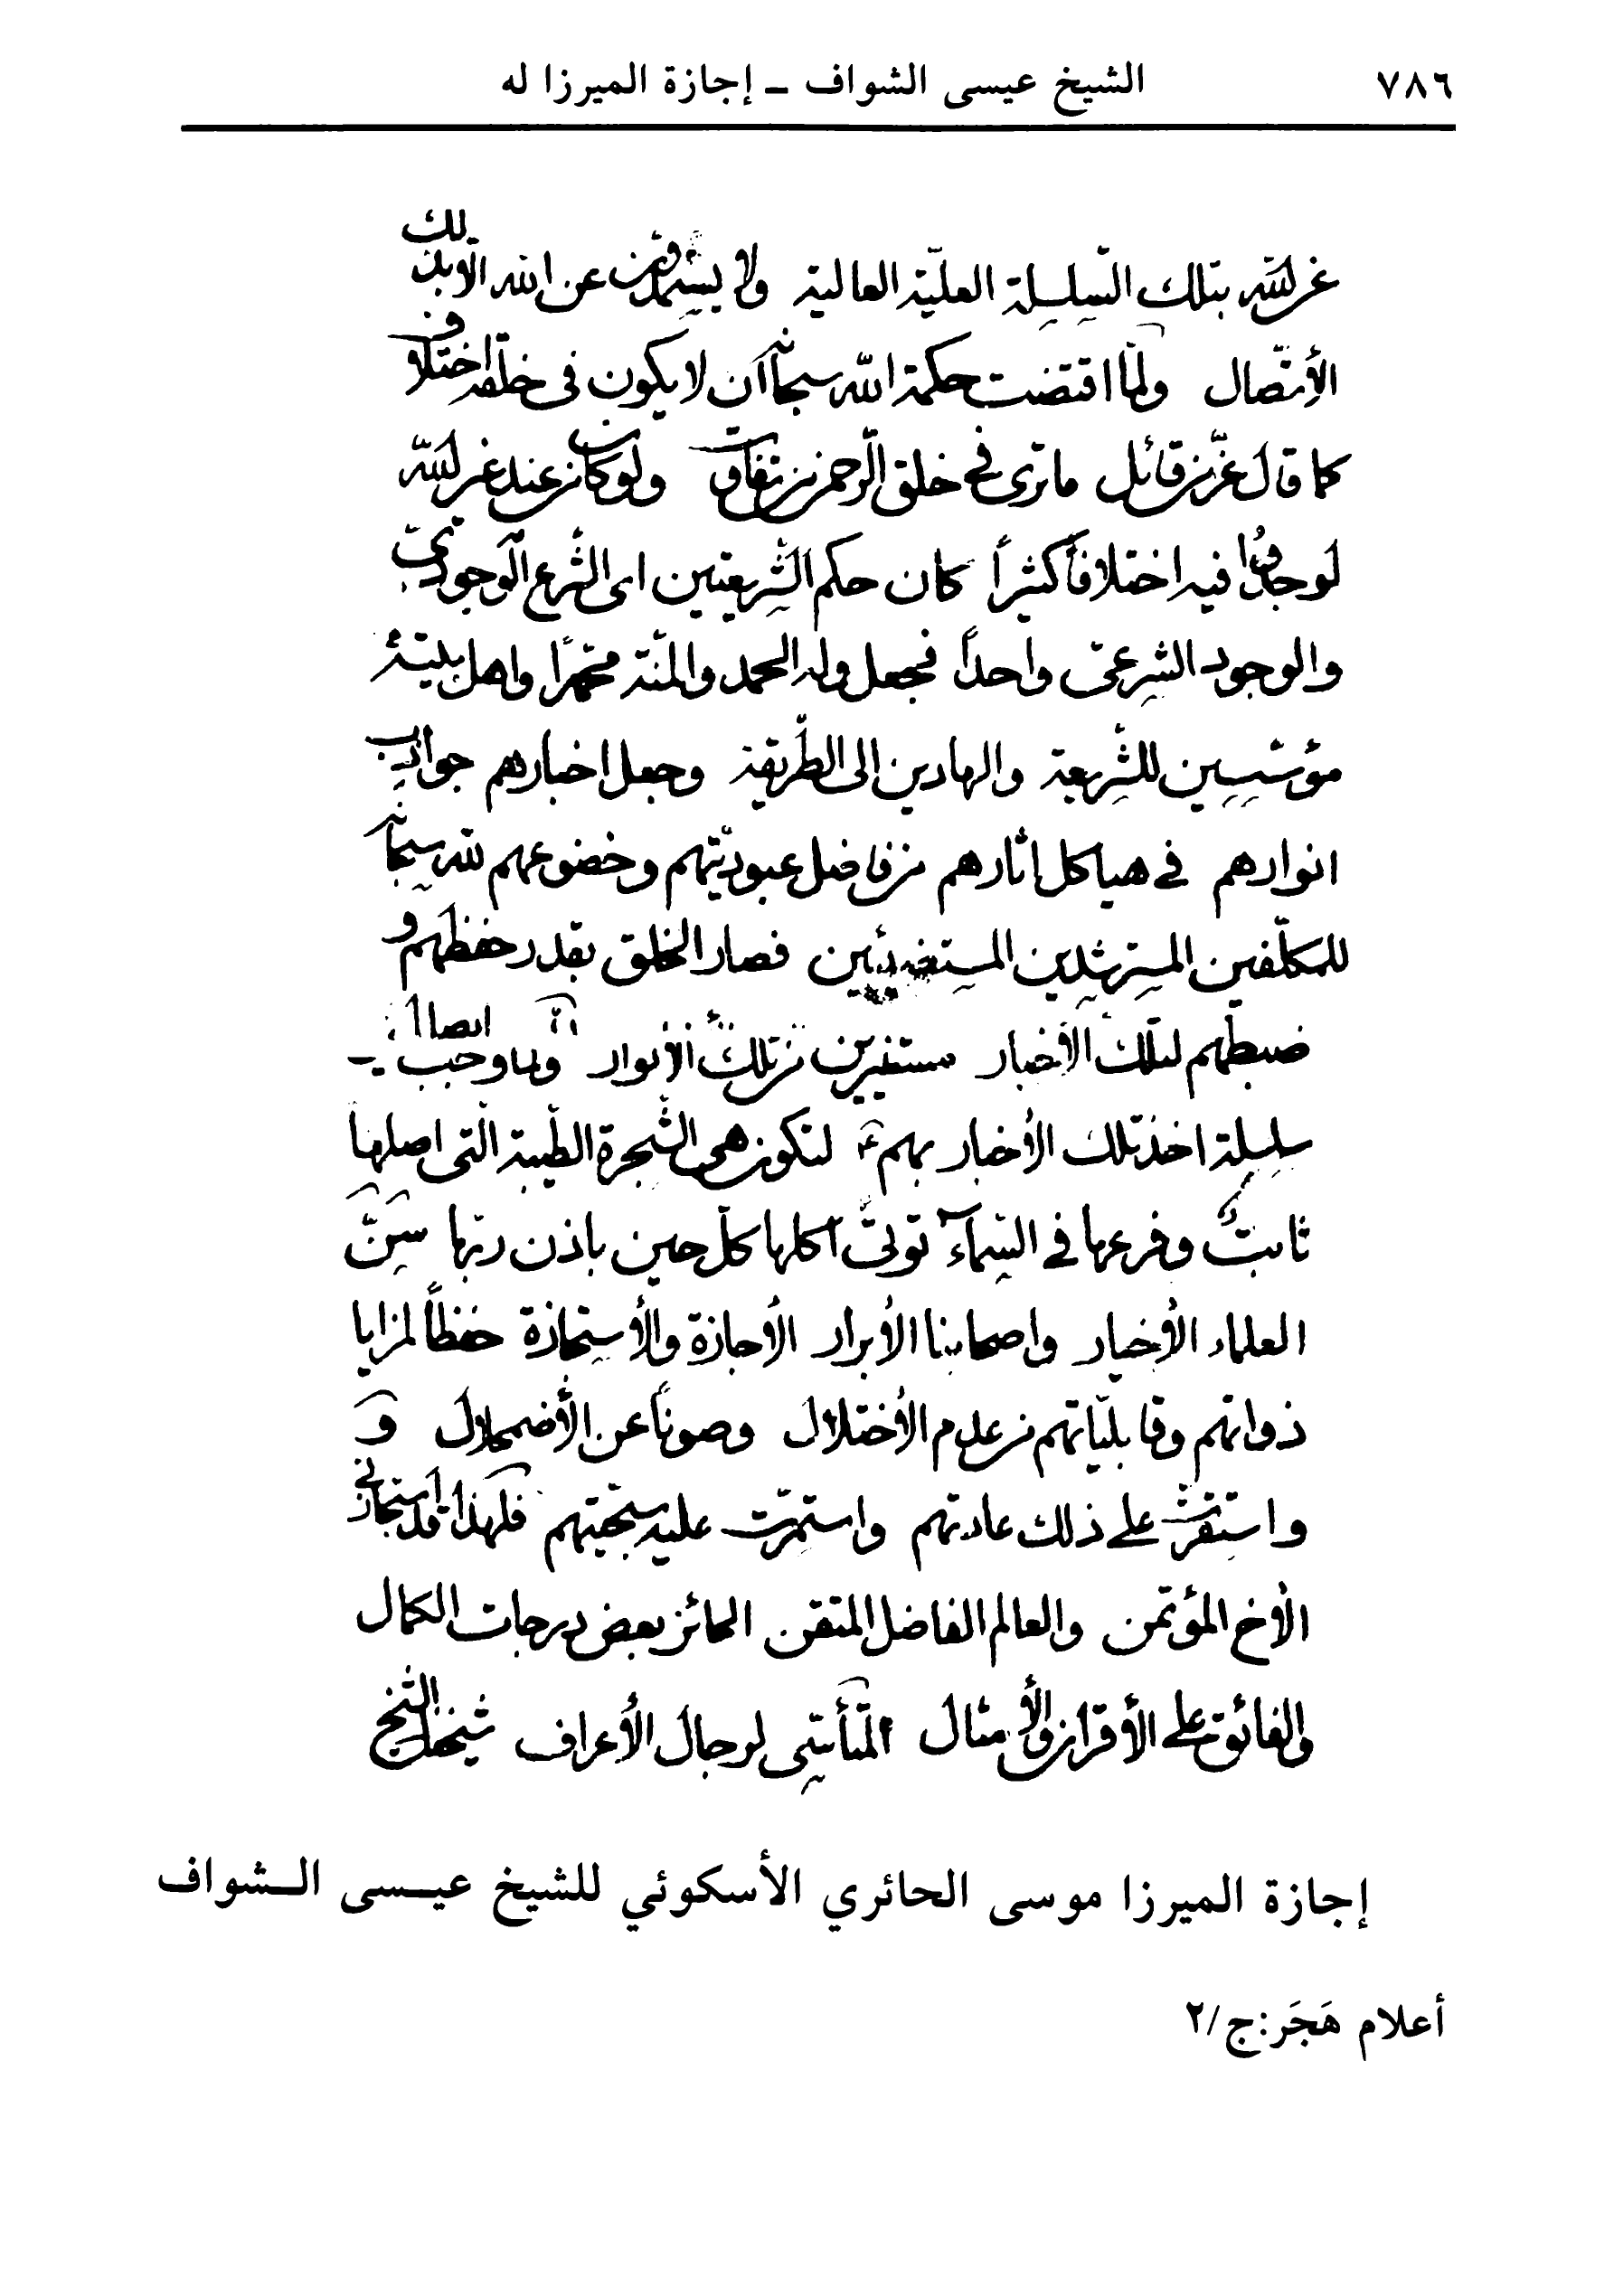 ٧٨٦ الشيخ عيسى الشواف ـ إجازة الميرزا له
عن الله بتلك السّلسلة العليّة العالية ولا عن الله الّا بذلك
الأتصال ولمّا اقتضت حكمة الله سبحانه ان لا يكون في خلقه اختلاف
كما قال عزّ من قائل ما ترى في خلق الرّحمن من تفاوت ولو كان من عند غير الله
لوجدوا فيه اختلافاً كثيراً كان حكم الشّريعتين اى الشّرع الوجودىّ
والوجود الشرعىّ واحداً فجعل وله الحمد والمنّة محمّداً واهل بيته
مؤسّسين للشّريعة والهادين الى الطّريقة وجعل اخبارهم جواذب
انوارهم في هياكل اثارهم من فاضل عبوديّتهم وخضوعهم لله سبحانه
للمكلّفين المسترشدين المستضيئين فصار الخلق بقدر حفظهم و
ضبطهم لتلك الأخبار مستنيرين من تلك الأنوار ولما وجب اتصال
سلسلة اخذ تلك الأخبار بهم ع لتكون هى الشّجرة الطّيبة الّتى اصلها
ثابتٌ وفرعها في السّماء تؤتى اكلها كلّ حين باذن ربّها سَنَّ
العلماء الأخيار واصحابنا الأبرار الأجازة والأستجازة حفظاً لمزايا
ذواتهم وقابليّاتهم من عدم الأختلال وصوناً عن الأضمحلال وَ
واستقرّت على ذلك عادتهم واستمرّت عليه سجيّتهم فلهذا قد استجازنى
الأخ المؤتمن والعالم الفاضل المتقن الحائز بعض درجات الكمال
والفائق على الأقران والأمثال المتأسّى لرجال الأعراف شيخنا الشيخ
إجازة الميرزا موسى الحائري الأسكوئي للشيخ عيسى الشواف
أعلام هَجَر:ج/٢